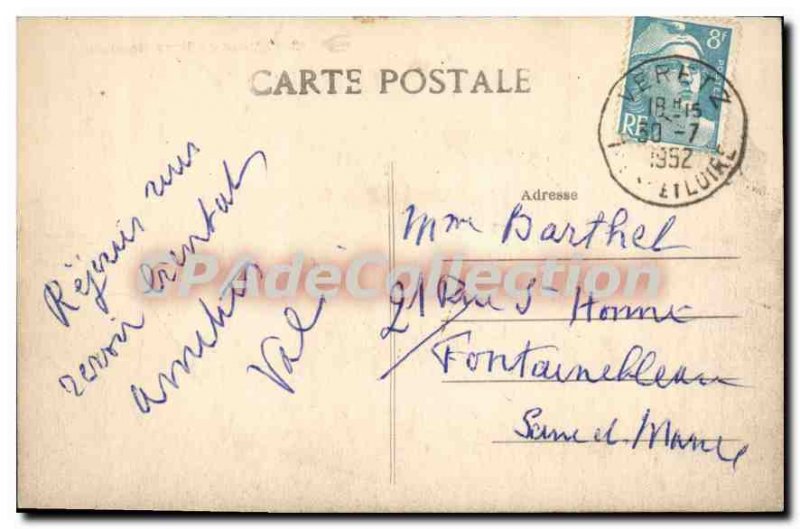 CARTE POSTALE
8f
RF
VERETZ
18H-15
30-7
1952
ET LOIRE
Adresse
Mme Barthel
21 Rue St Honoré
Fontainebleau
Seine et Marne
Réjouis vous
revoir bientôt
amitiés
CPAdeCollection